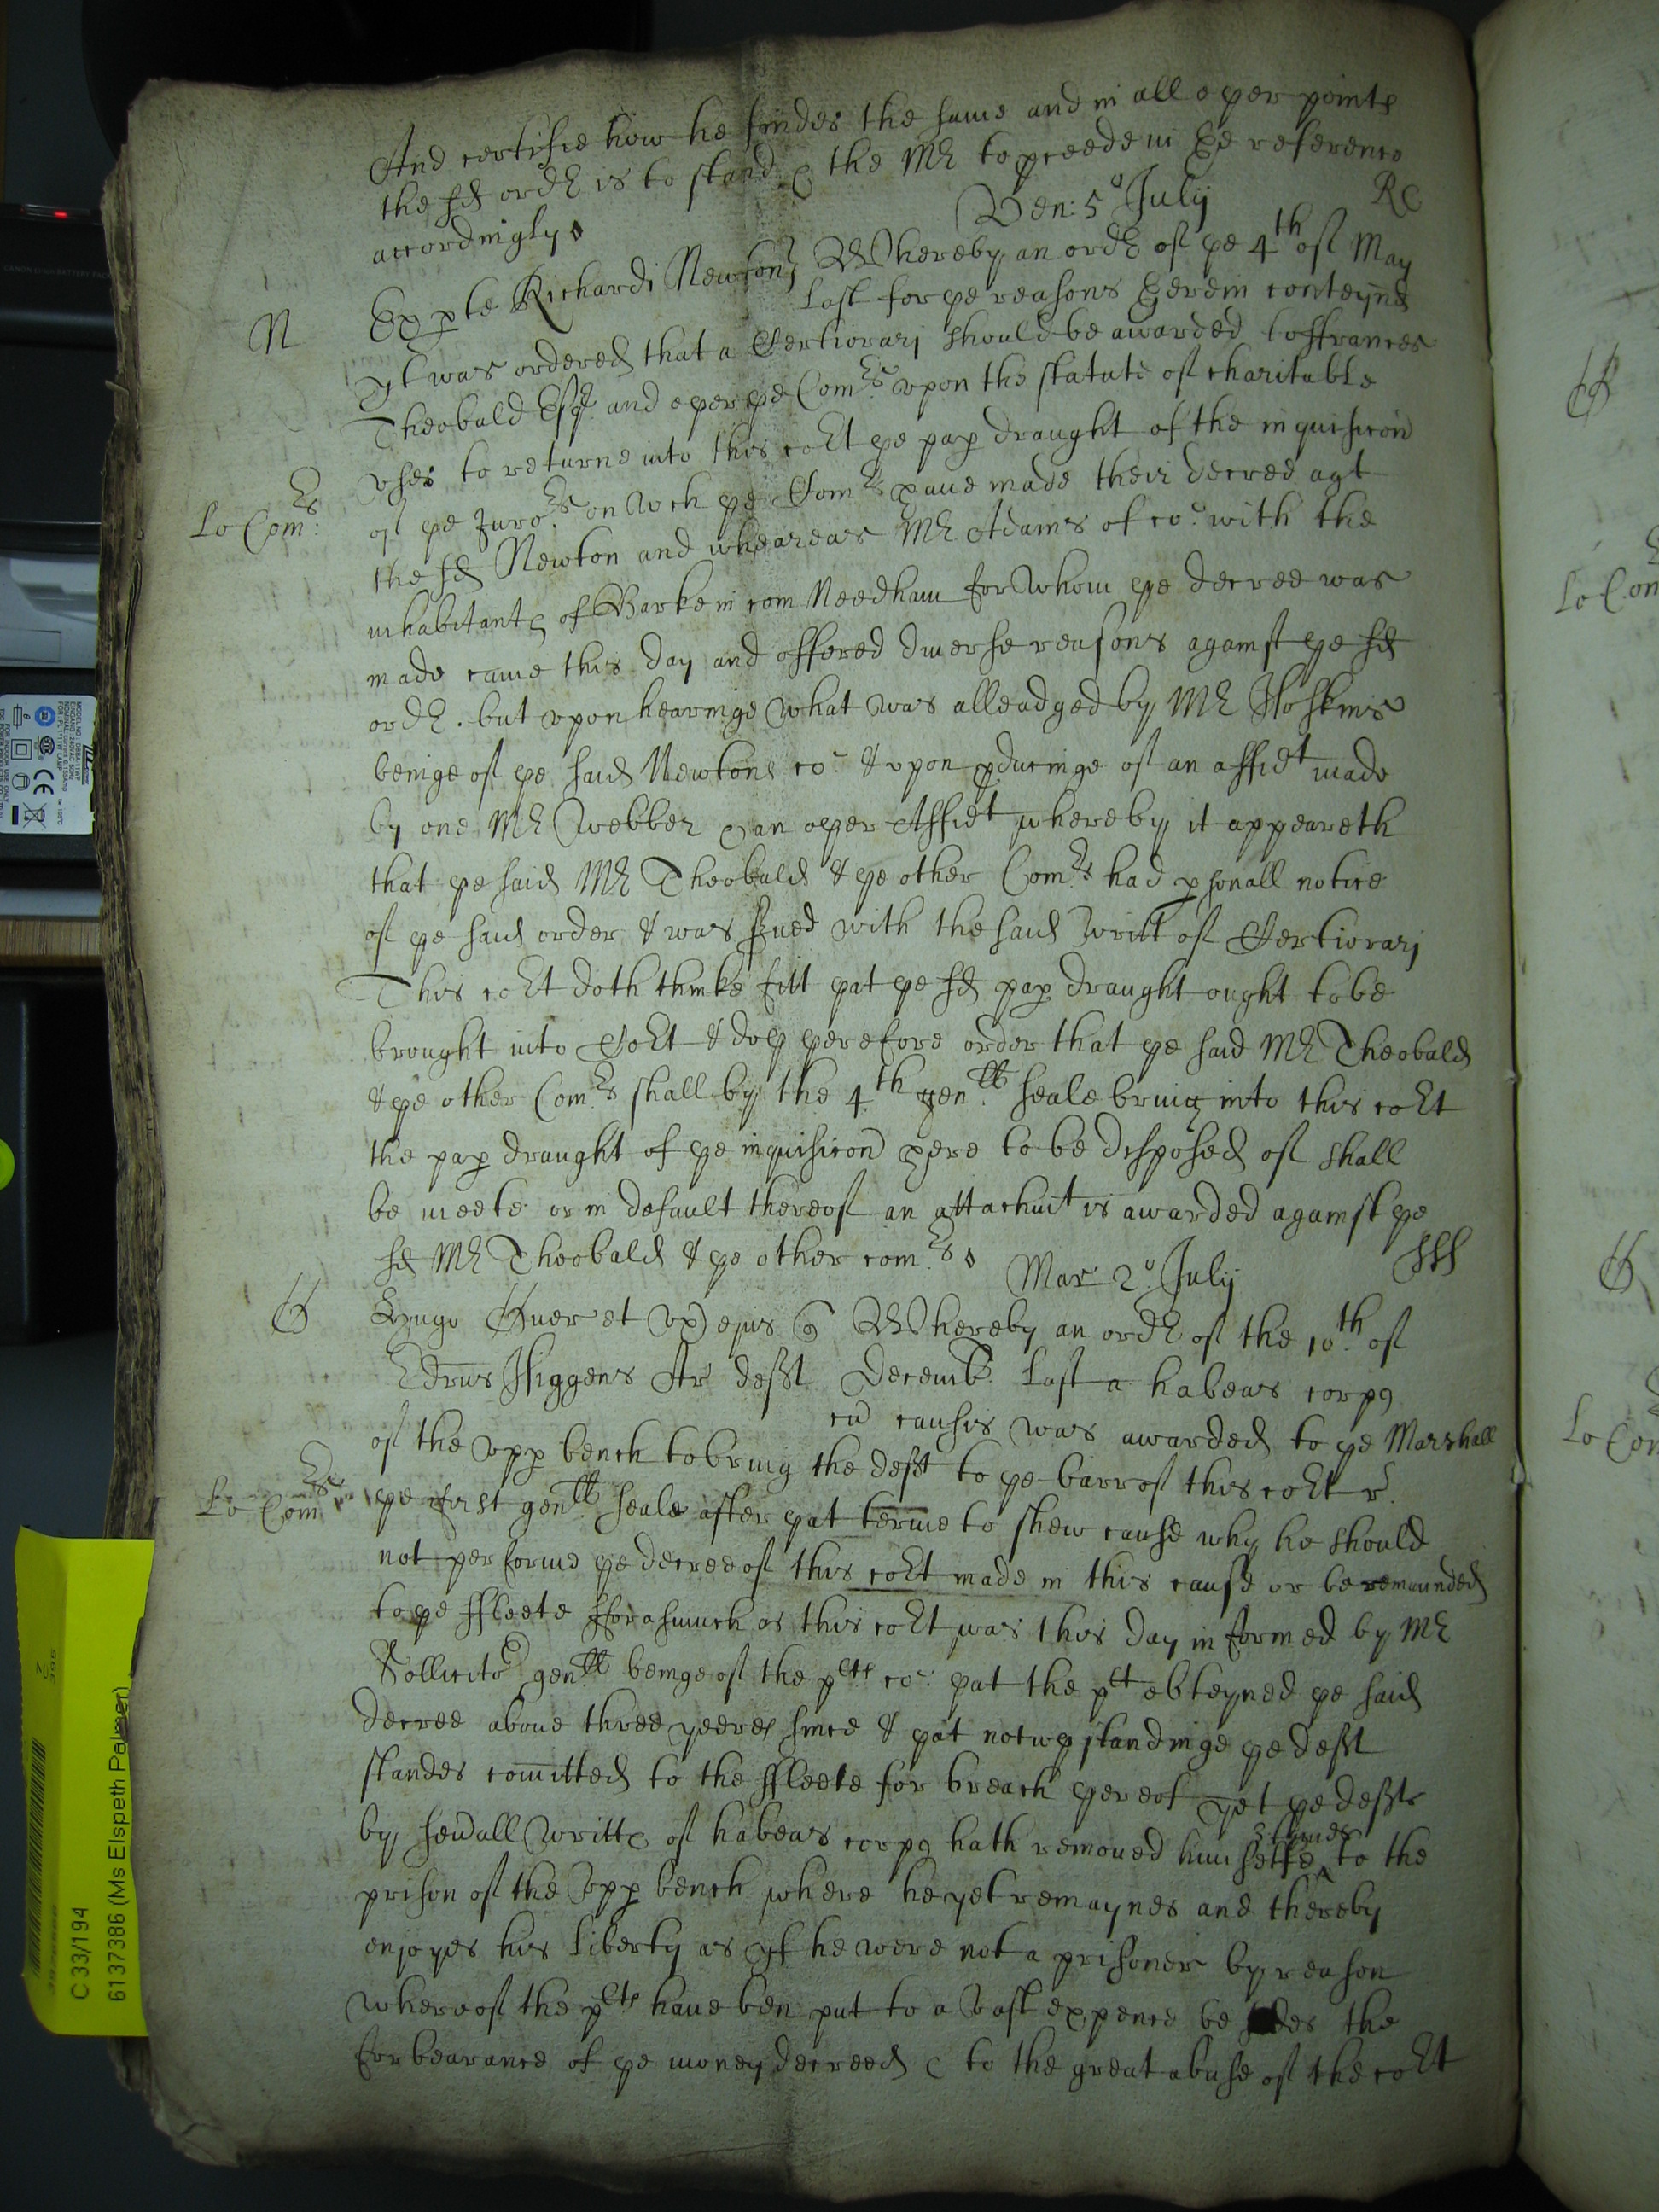 And certifie how he findes the same and in all oþer pointes
the sd ordr is to stand & the Mr to pceede in þe reference
accordingly
RC
Ven: 5o July
N
Ex pte Richardi Newton
Whereby an ordr of þe 4th of May
last for þe reasons þerein conteyned
yt was ordered that a Certiorarj should be awarded to ffrances
Theobald Esqr and oþer þe Comrs vpon the statute of charitable
Lo Comrs
vses to returne into this cort þe pap draught of the inquisicon
of þe Jurors on wch þe Comrs haue made their decree agt
the sd Newton and wheareas Mr Adams of co: with the
inhabitants of Barke in com Needham for whom þe decree was
made came this day and offered diuerse reasons against þe sd
ordr. but vpon hearinge what was alleadged by Mr Hoskins
beinge of þe said Newtons co: & vpon pducinge of an affidt made
by one Mr Webber & an oþer Affidt whereby it appeareth
that þe said Mr Theobald & þe other Comrs had psonall notice
of þe said order & was srued with the said writt of Certiorarj
This cort doth thinke fitt þat þe sd pap draught ought to be
brought into Cort & doþ þerefore order that þe said Mr Theobald
& þe other Comrs shall by the 4th genll seale bring into this cort
the pap draught of þe inquisicon þere to be disposed of shall
be meete or in default thereof an attachmt is awarded against þe
sd Mr Theobald & þe other comrs
Mar 2o July
SSS
H
Hugo et vx ejus
Whereby an ordr of the 10th of
Edrus Higgens Ar deft
Decemb. last a habeas corp9
cu causis was awarded to þe Marshall
of the vpp bench to bring the deft to þe barr of this cort
Lo Comrs
þe first genll seale after þat terme to shew cause why he should
not performe þe decree of this cort made in this cause or be remaunded
to þe ffleete fforasmuch as this cort was this day informed by Mr
Sollicitor genll beinge of the plts co: þat the plt obteyned þe said
decree aboue three yeeres since & þat notwþstandinge þe deft
standes comitted to the ffleete for breach þereof yet þe deft
by seuall writts of habeas corp9 hath remoued himselfe to the
3 times
prison of the vpp bench where he yet remaynes and thereby
enjoyes his liberty as yf he were not a prisoner by reason
whereof the plts haue ben put to a vast expence besides the
forbearance of þe money decreed & to the great abuse of the cort
Lo Com
C 33/194
6137386 (Ms Elspeth Palmer)